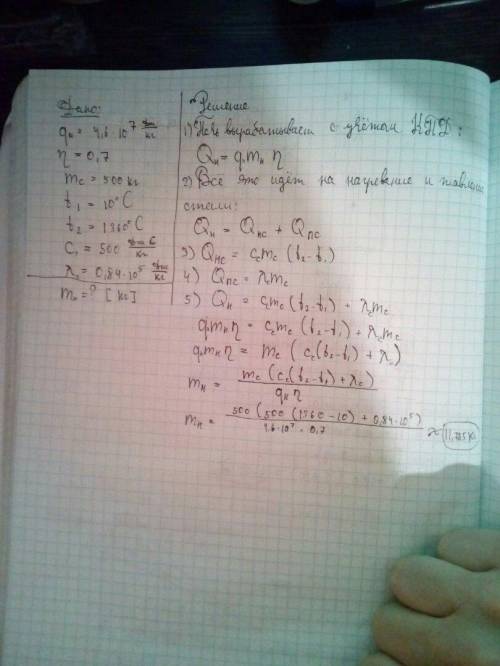 Дано:
qн = 4,6 · 10⁷ Дж/кг
η = 0,7
mc = 500 кг
t₁ = 10°C
t₂ = 1360°C
Cc = 500
λc = 0,84·10⁵ Дж/кг
mн = ? [кг]
Решение
1) Печь вырабатывает с учётом КПД:
Qн = q·mн η
2) Всё это идёт на нагревание и плавление
стали:
Qн = Qнс + Qпс
3) Qнс = Ccmc (t₂ - t₁)
4) Qпс = λcmc
5) Qн = Ccmc (t₂ - t₁) + λcmc
q·mнη = Ccmc (t₂ - t₁) + λcmc
q·mнη = mc ( Cc(t₂ - t₁) + λc)
mн = mc ( Cc(t₂ - t₁) + λc) / qн η
mн = 500 (500 (1360 - 10) + 0,84·10⁵) / 4,6·10⁷ · 0,7 ≈